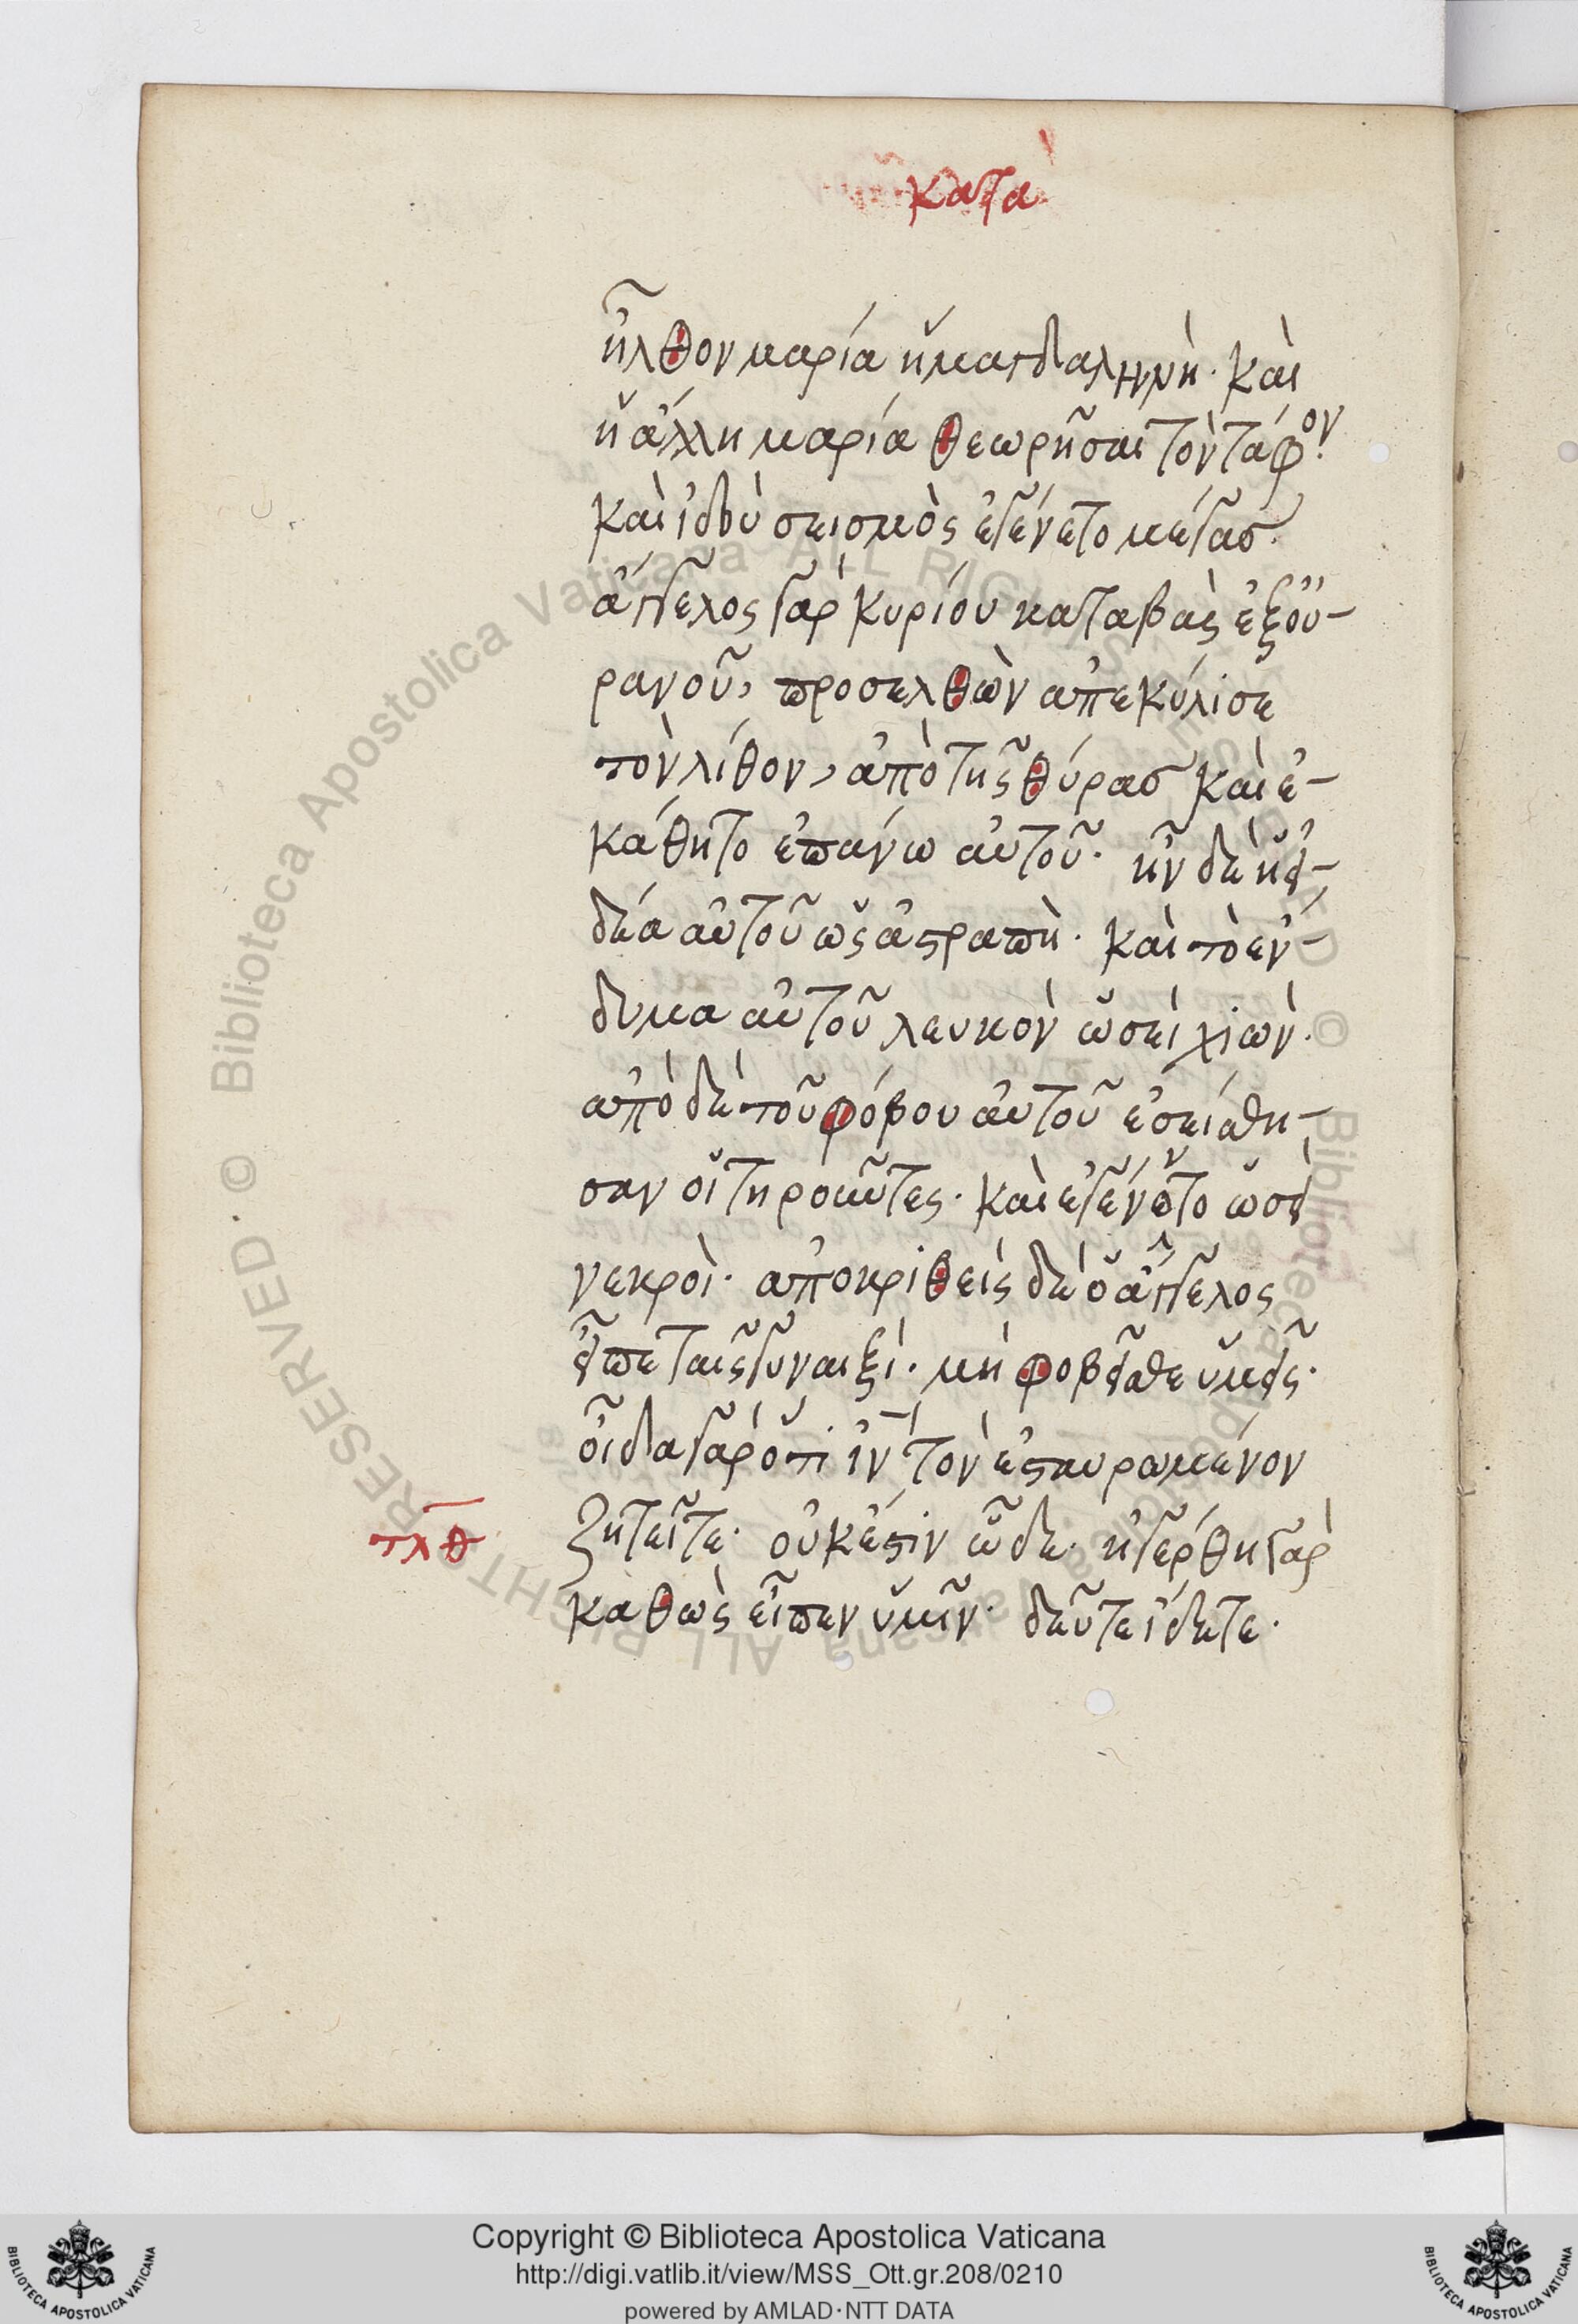 κατα
ἦλθον μαρία ἡ μαγδαληνὴ· καὶ
ἡ ἄλλη μαρία θεωρῆσαι τὸν τάφον·
καὶ ἰδοὺ σεισμὸς ἐγένετο μέγας·
ἄγγελος γὰρ κυρίου καταβὰς ἐξ οὐ-
ρανοῦ, προσελθὼν ἀπεκύλισε
τὸν λίθον, ἀπὸ τῆς θύρας καὶ ἐ-
κάθητο ἐπάνω αὐτοῦ· ἦν δὲ ἡ εἰ-
δέα αὐτοῦ ὡς ἀστραπὴ· καὶ τὸ ἔν-
δυμα αὐτοῦ λευκὸν ὡσεὶ χιὼν·
ἀπὸ δὲ τοῦ φόβου αὐτοῦ ἐσείσθη-
σαν οἱ τηροῦντες· καὶ ἐγένοντο ὡσεὶ
νεκροὶ· ἀποκριθεὶς δὲ ὁ ἄγγελος
εἶπε ταῖς γυναιξὶ· μὴ φοβεῖσθε ὑμεῖς·
οἶδα γὰρ ὅτι ἰν τὸν ἐσταυρωμένον
τλθ ζητεῖτε· οὐκ ἔστιν ὧδε· ἠγέρθη γὰρ
καθὼς εἶπεν ὑμῖν· δεῦτε ἴδετε·
Biblioteca Apostolica Vaticana ALL RIGHTS RESERVED · ©
Copyright © Biblioteca Apostolica Vaticana
http://digi.vatlib.it/view/MSS_Ott.gr.208/0210
powered by AMLAD·NTT DATA
BIBLIOTECA APOSTOLICA VATICANA
BIBLIOTECA APOSTOLICA VATICANA